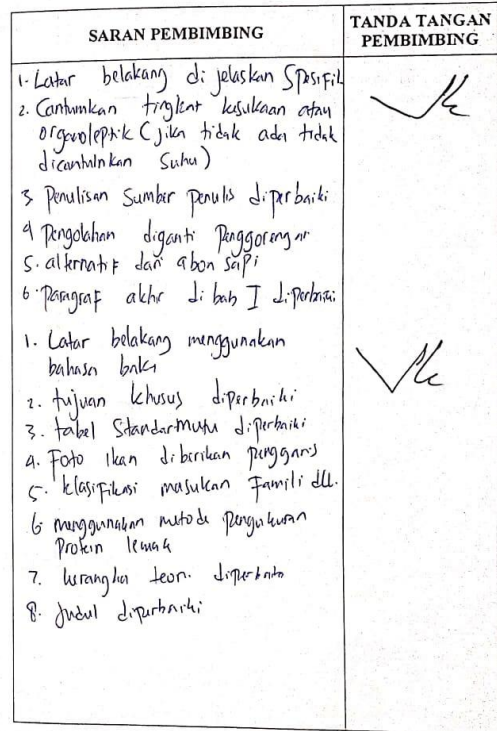 SARAN PEMBIMBING
TANDA TANGAN
PEMBIMBING
1. Latar belakang di jelaskan Spesifik
2. Cantumkan tingkat kesukaan atau
organoleptik (jika tidak ada tidak
dicantumkan Suhu)
3 Penulisan Sumber penulis diperbaiki
4 Pengolahan diganti Penggorengan
5. alternatif dari abon sapi
6. Paragraf akhir di bab I diperbaiki
1. Latar belakang menggunakan
bahasa baku
2. tujuan khusus diperbaiki
3. tabel Standar Mutu diperbaiki
4. Foto ikan diberikan penggaris
5. klasifikasi masukan Famili dll.
6. menggunakan metode pengukuran
Protein lemak
7. kerangka teori diperbaiki
8. Judul diperbaiki